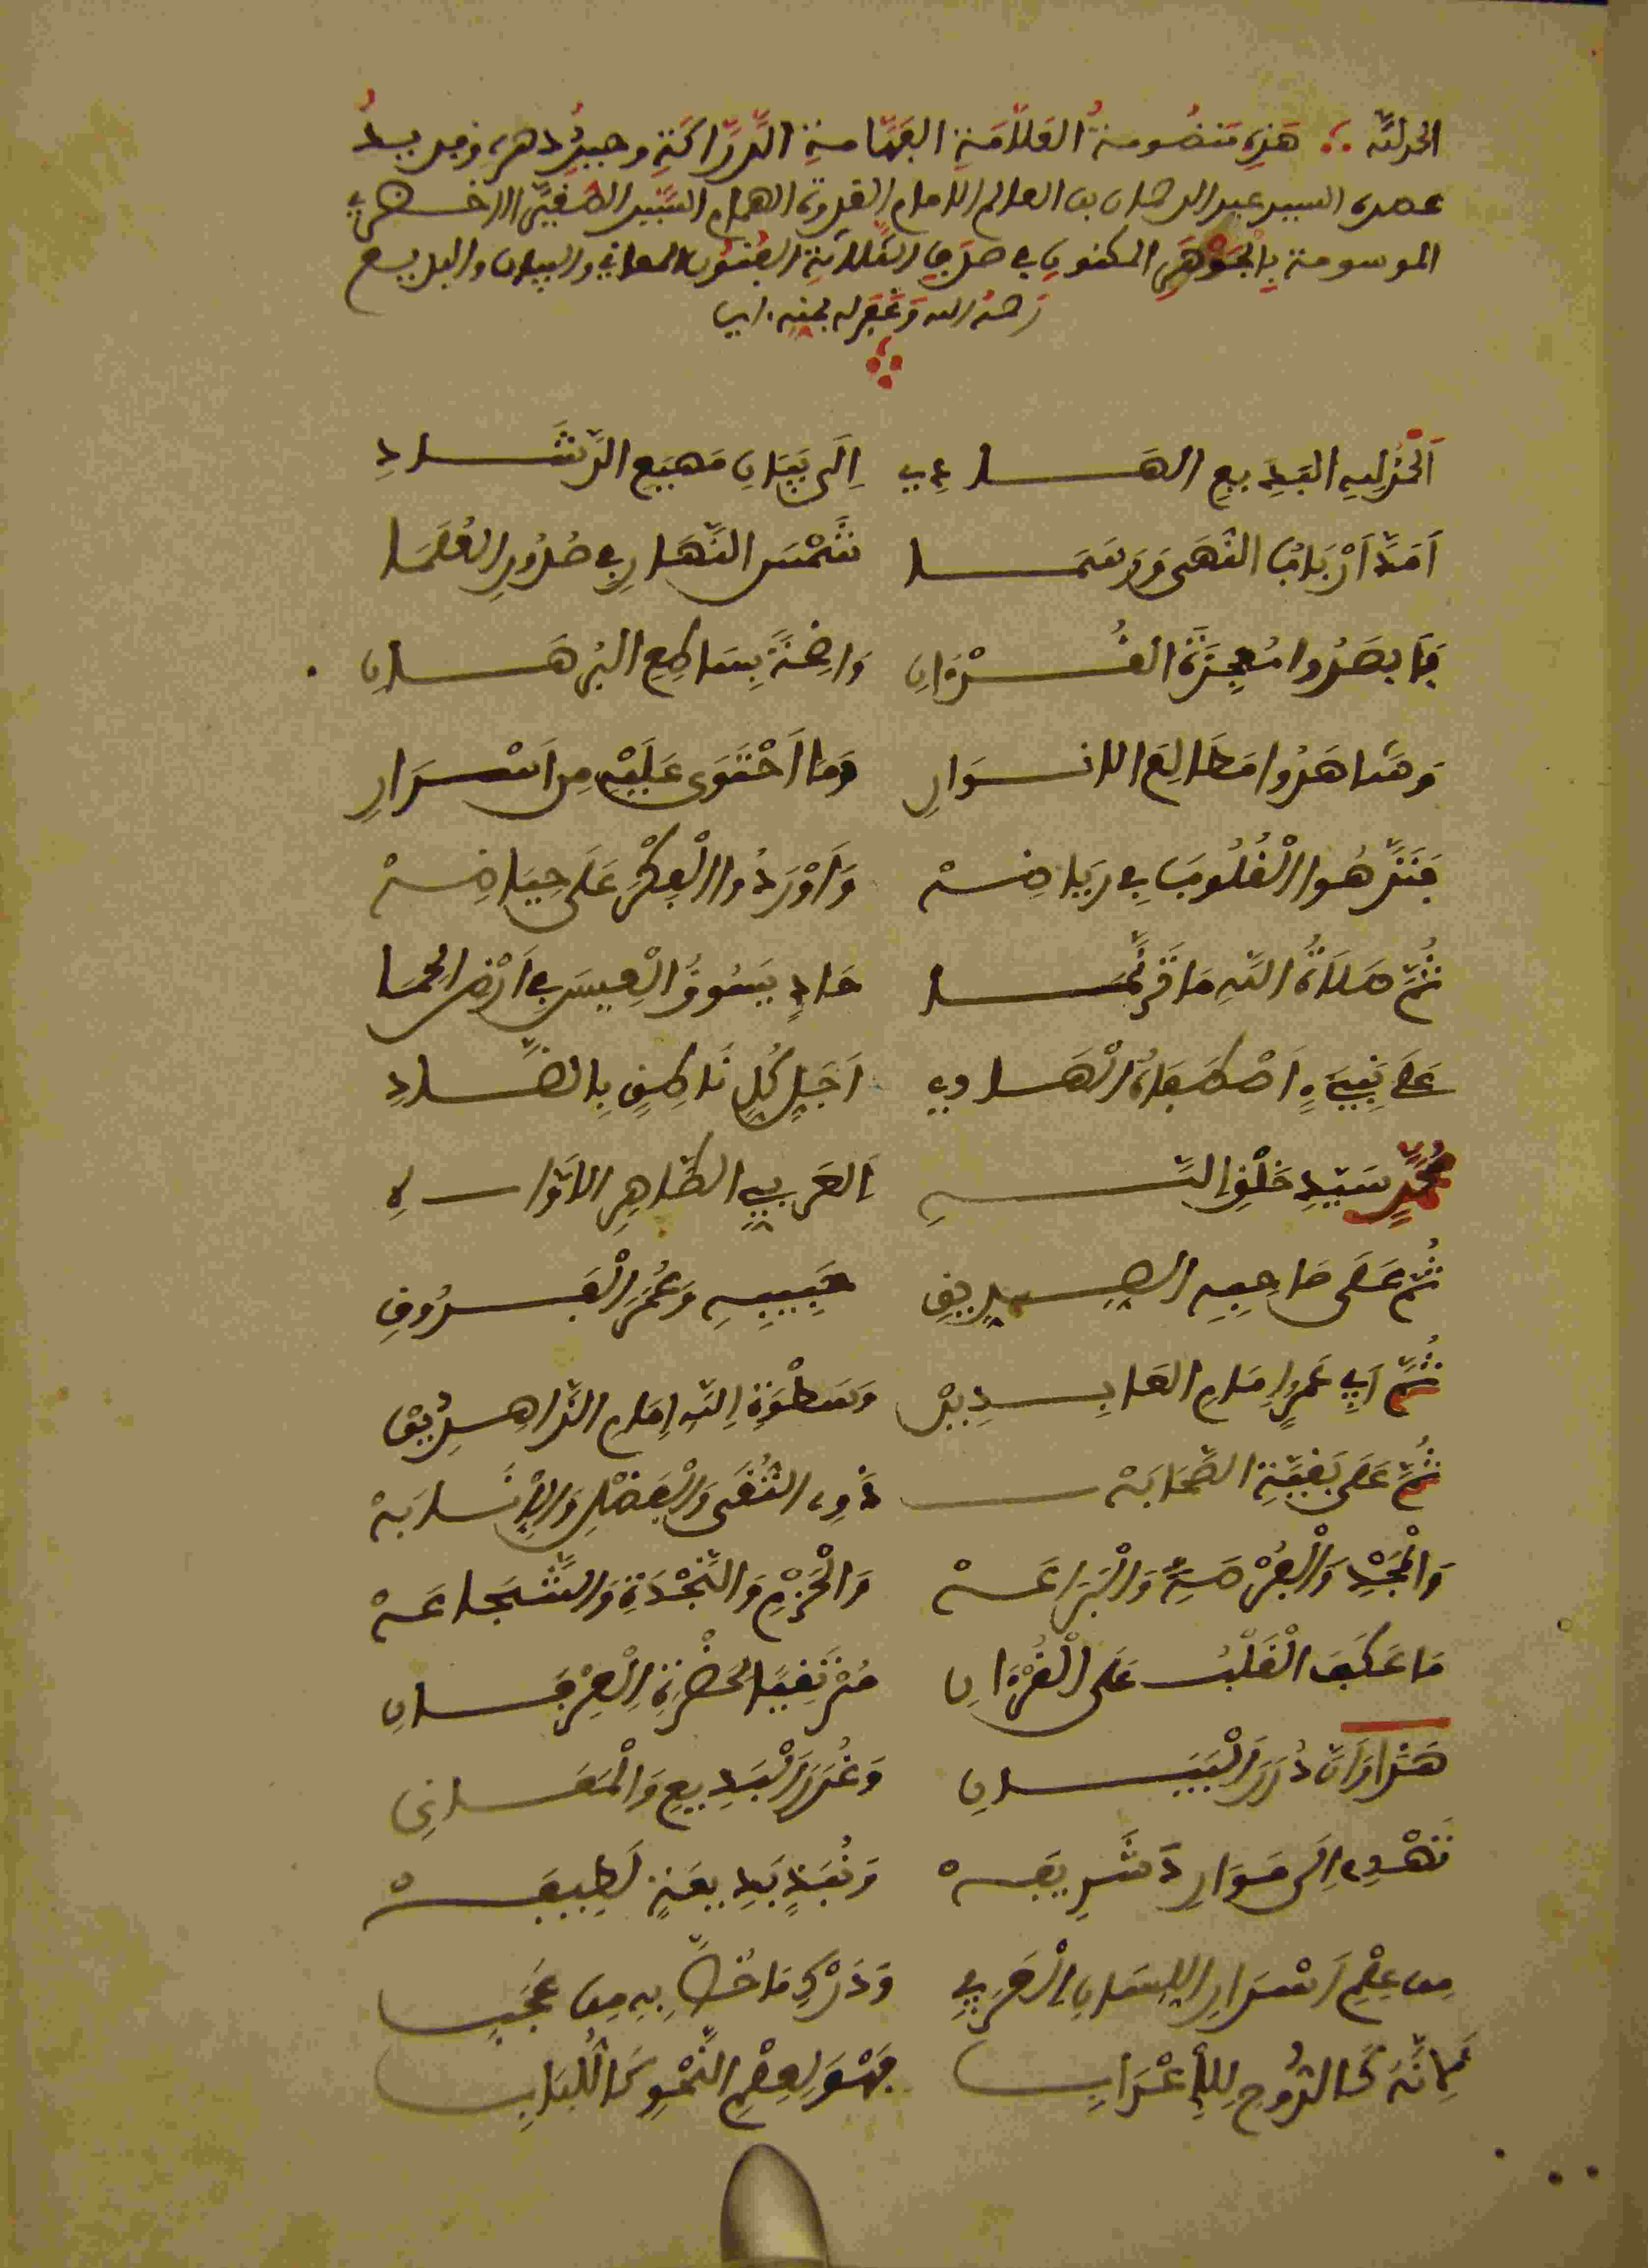 الحمد لله هَذِهِ مَنْضُومةُ العَلَّامَةِ الفَهَّامةِ الدَّرَّاكَةِ وحيدُ دهره وفريدُ
عصره السيد عبد الرحمان بن العالم الامام القدوة الهمام السَّيد الصغيَّر الاخضري
الموسومة بِالجَوْهَرِ المكنونِ في صَدَفِ الثَّلَاثَةِ الفُنُونِ المعاني والبيان والبديع
رَحمهُ الله وَغَفَر له بمنه ءامين
اَلْحَمْدُ لِلهِ البَدِيعِ الهَادِي اِلَى بَيَانِ مَهْيَعِ الرَّشَادِ
اَمَدَّ اَرْبَابَ النُّهَى وَرَسَمَا شَمْسَ النَّهَارِ فِي صُدُورِ العُلَمَا
فَأَبْصَرُوا مُعْجِزَةَ القُرْءَانِ وَاضِحَةً بِسَاطِعِ البُرْهَانِ
وَشَاهَدُوا مَطَالِعَ الانوَارِ وَمَا اَحْتَوَى عَلَيْهِ مِن اَسْرَارِ
فَنَزَّهُوا الْقُلُوبَ فِي رِيَاضِهْ وَأَوْرَدُوا الْفِكْرَ عَلَى حِيَاضِهْ
ثُمَّ صَلَاةُ اللَّهِ مَا تَرَنَّمَا حَادٍ يَسُوقُ الْعِيسَ فِي اَرْضِ الحِمَا
عَلَى نَبِيِّهِ اَصْطَفَاهُ الْهَادِي اَجَلِّ كُلِّ نَاطِقٍ بِالضَّادِ
مُحَمَّدٍ سَيِّدِ خَلْقِ اللَّهِ اَلعَرَبِيِّ الطَّاهِرِ الاَوَّاهِ
ثُمَّ عَلَى صَاحِبِهِ الصِّدِّيقِ حَبِيبِهِ وَعُمَرَ الْفَرُوقِ
ثُمَّ اَبِي عَمْرٍ اِمَامِ العَابِدِينْ وَسَطْوَةِ اِللَّهِ اِمَامِ الزَّاهِدِينْ
ثُمَّ عَلَى بَقِيَّةِ الصَّحَابَهْ ذَوِي التُّقَى وَالْفَضْلِ وَالْإِنَابَهْ
وَالْمَجْدِ وَالْفُرْصَةِ وَالْبَرَاعَهْ وَالْحَزْمِ وَالنَّجْدَةِ وَالشَّجَاعَهْ
مَا عَكَفَ الْقَلْبُ عَلَى الْقُرْءَانِ مُرْتَقِيًا لِحَضْرَةِ اِلْعِرْفَانِ
هَذَا وَإِنَّ دُرَرَ الْبَيَانِ وَغُرَرَ الْبَدِيعِ وَالْمَعَانِي
تَهْدِي اِلَى مَوَارِدَ شَرِيفَهْ وَنُبَذٍ بَدِيعَةٍ لَطِيفَهْ
مِن عِلْمِ اَسْرَارِ اللِّسَانِ اِلْعَرَبِي وَدَرْكِ مَا خُصَّ بِهِ مِن عَجَبِ
لِأَنَّهُ كَالرُّوحِ لِلْإِعْرَابِ وَهْوَ لِعِلْمِ النَّحْوِ كَاللُّبَابِ